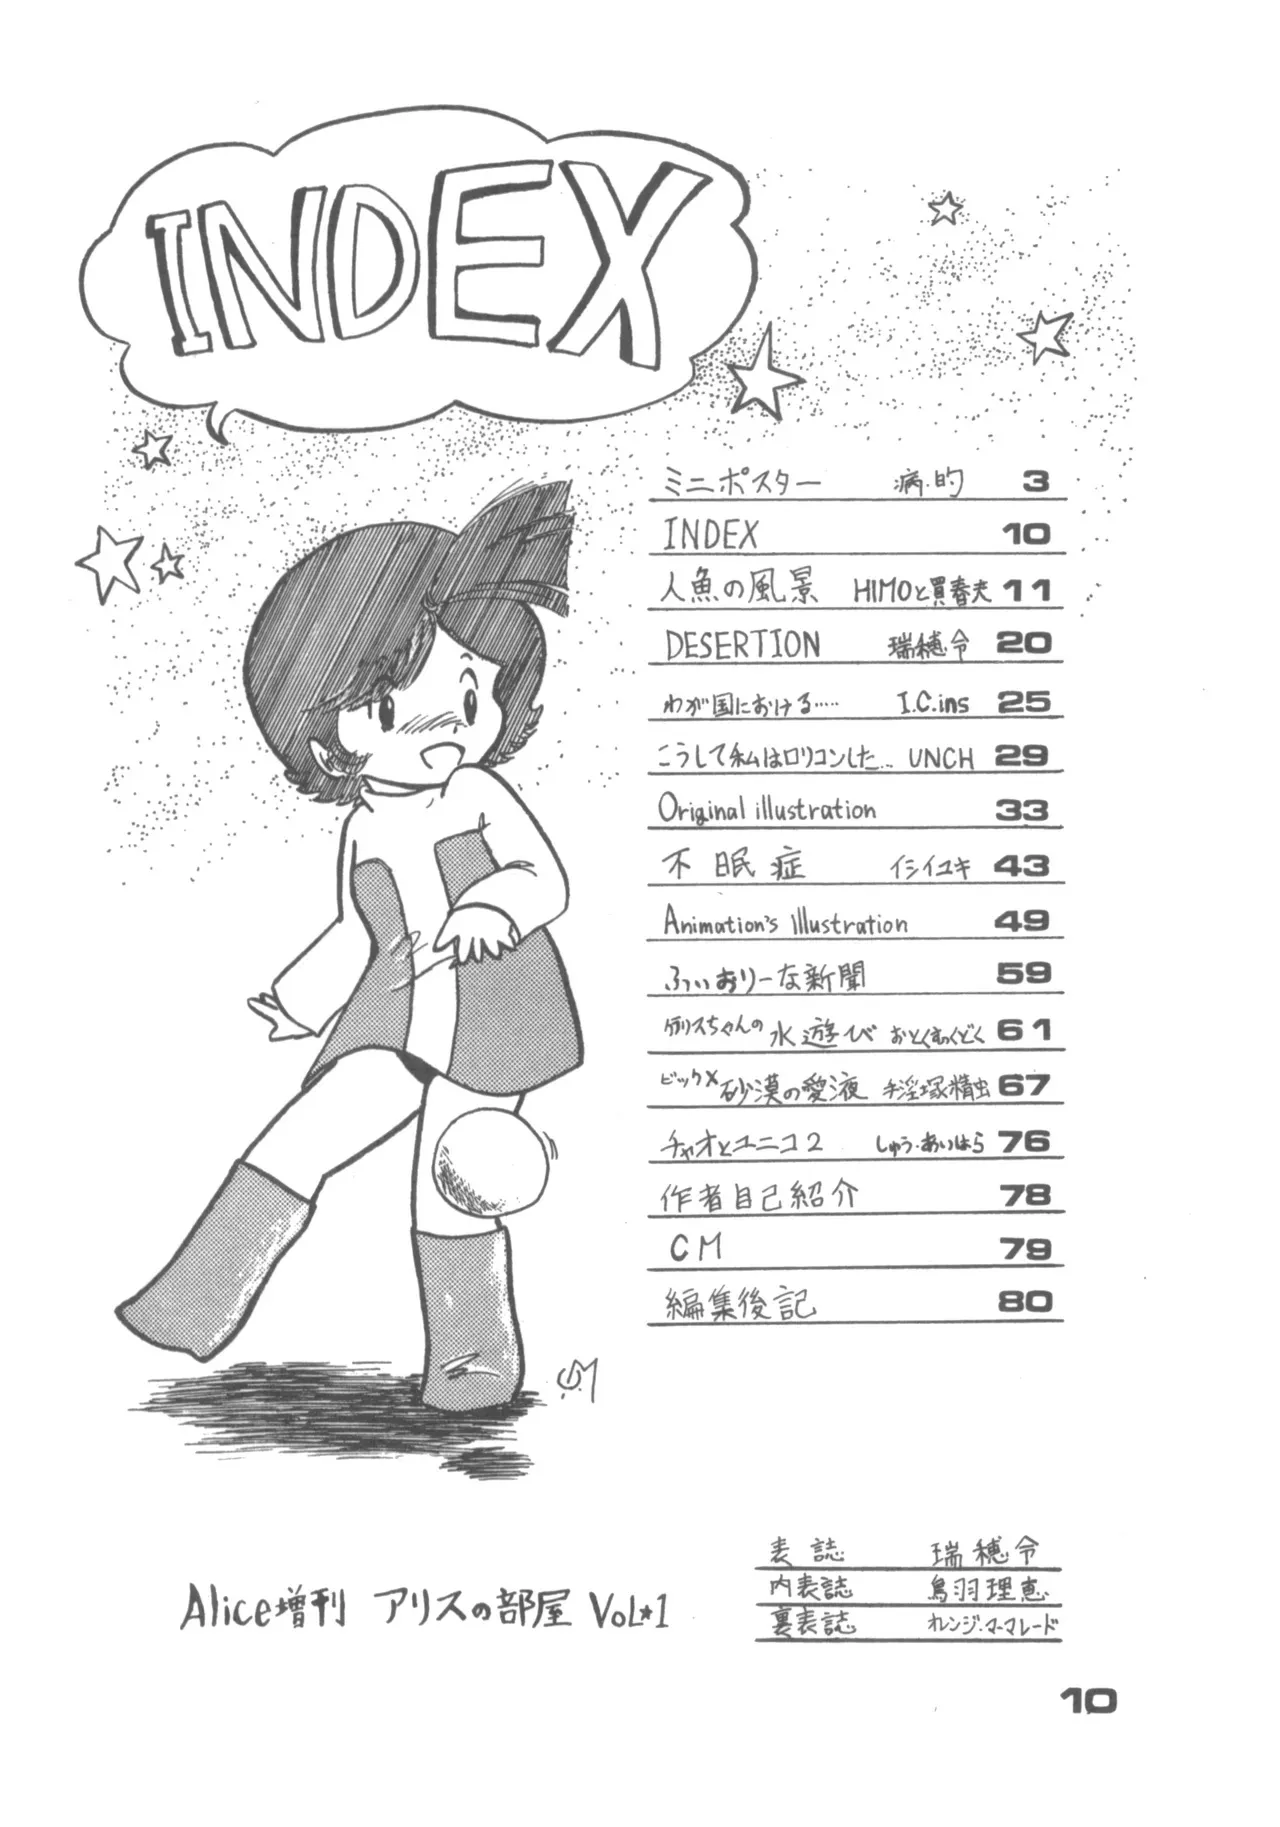 INDEX
ミニポスター 病・的 3
INDEX 10
人魚の風景 HIMOと買春夫 11
DESERTION 瑞穂令 20
わが国における…‥ I.C.ins 25
こうして私はロリコンした… UNCH 29
Original illustration 33
不眠症 イシイユキ 43
Animation's Illustration 49
ふぃおりーな新聞 59
ちゃんの水遊び 61
ビックX 砂漠の愛液 手淫塚精虫 67
チャオとユニコ2 しゅう・あいはら 76
作者自己紹介 78
CM 79
編集後記 80
表誌 瑞穂令
内表誌 鳥羽理恵
裏表誌 オレンジ・マーマレード
Alice増刊 アリスの部屋 VoL*1
10